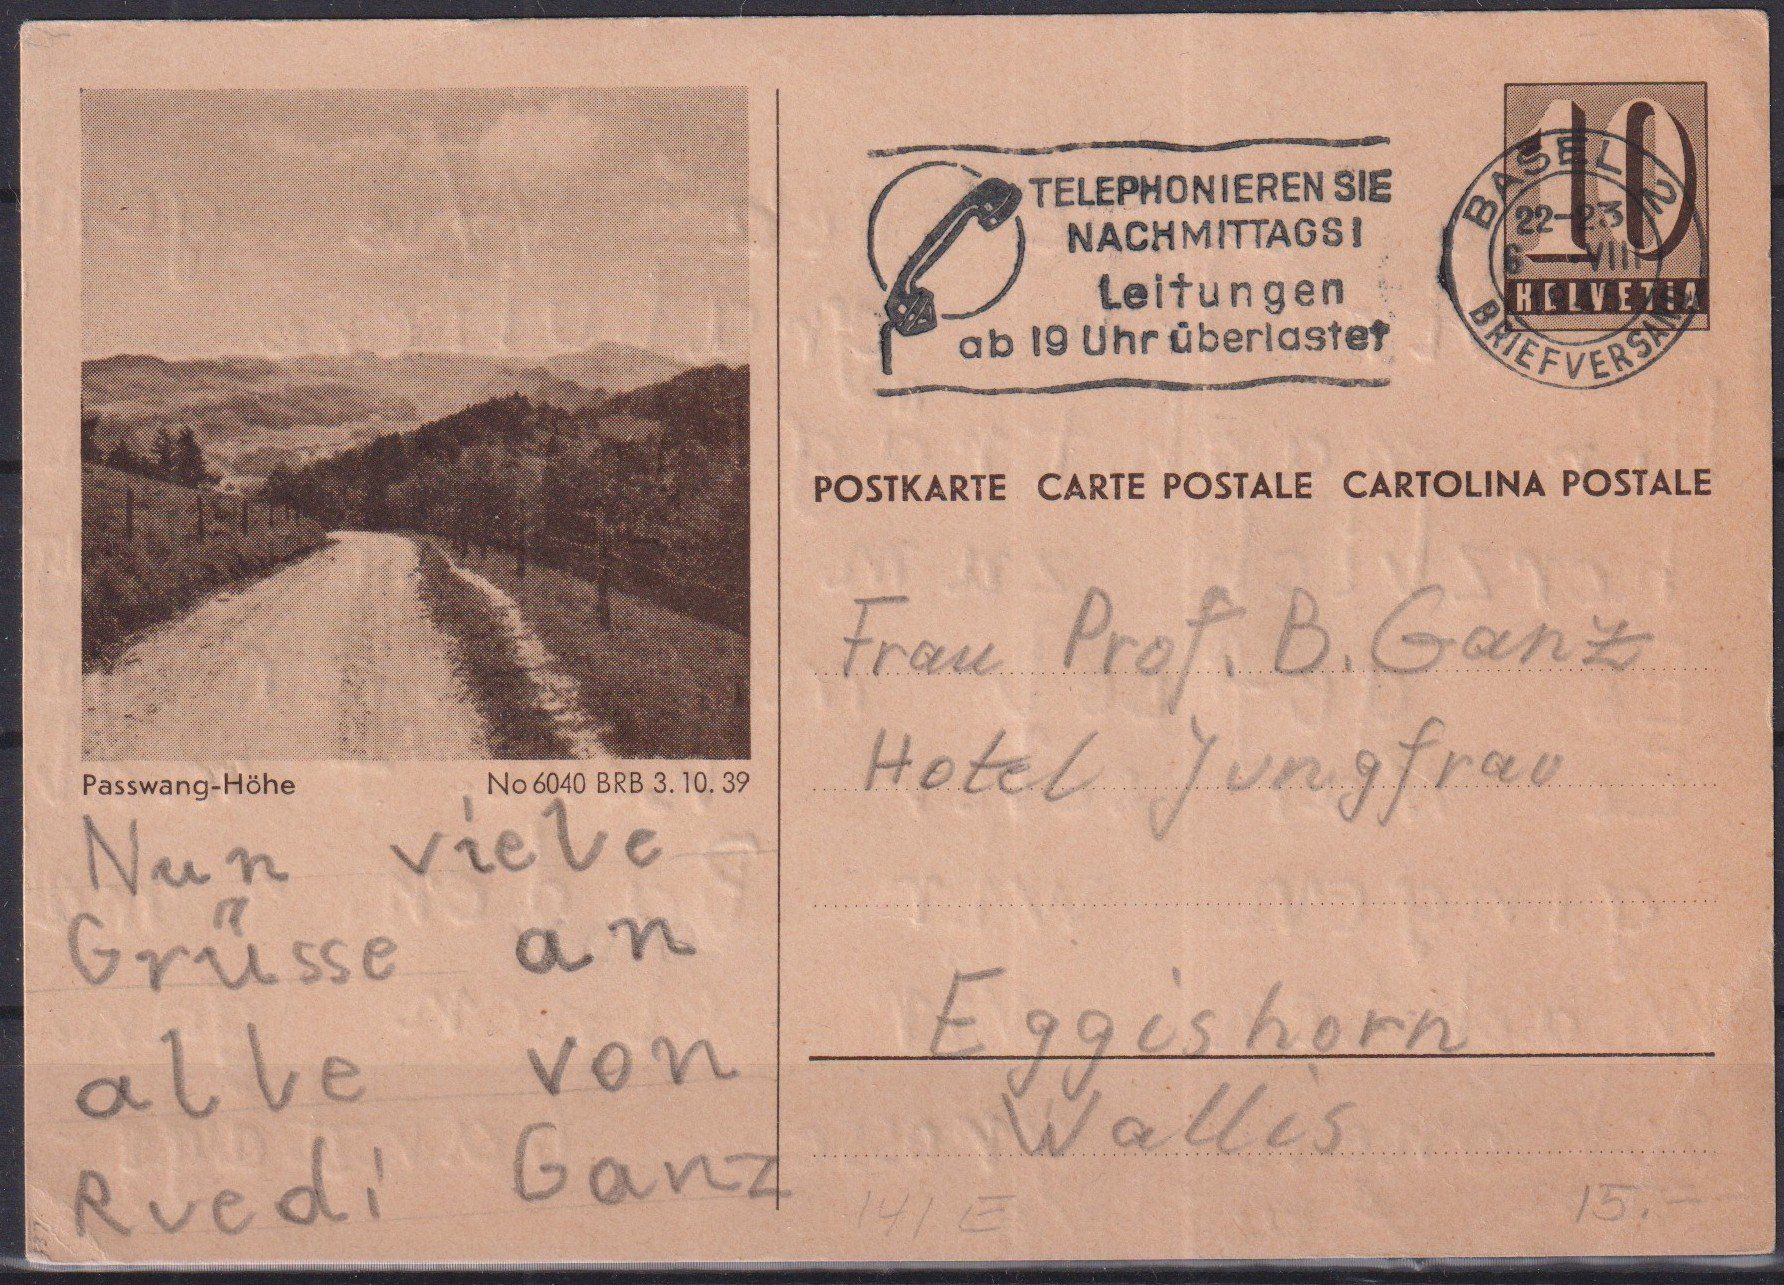 Passwang-Höhe No 6040 BRB 3. 10. 39
Nun viele
Grüsse an
alle von
Ruedi Ganz
TELEPHONIEREN SIE
NACHMITTAGS!
Leitungen
ab 19 Uhr überlastet
10
HELVETIA
BASEL 2
22-23
VIII
BRIEFVERSAND
POSTKARTE CARTE POSTALE CARTOLINA POSTALE
Frau Prof. B. Ganz
Hotel Jungfrau
Eggishorn
Wallis
141 E 15.--